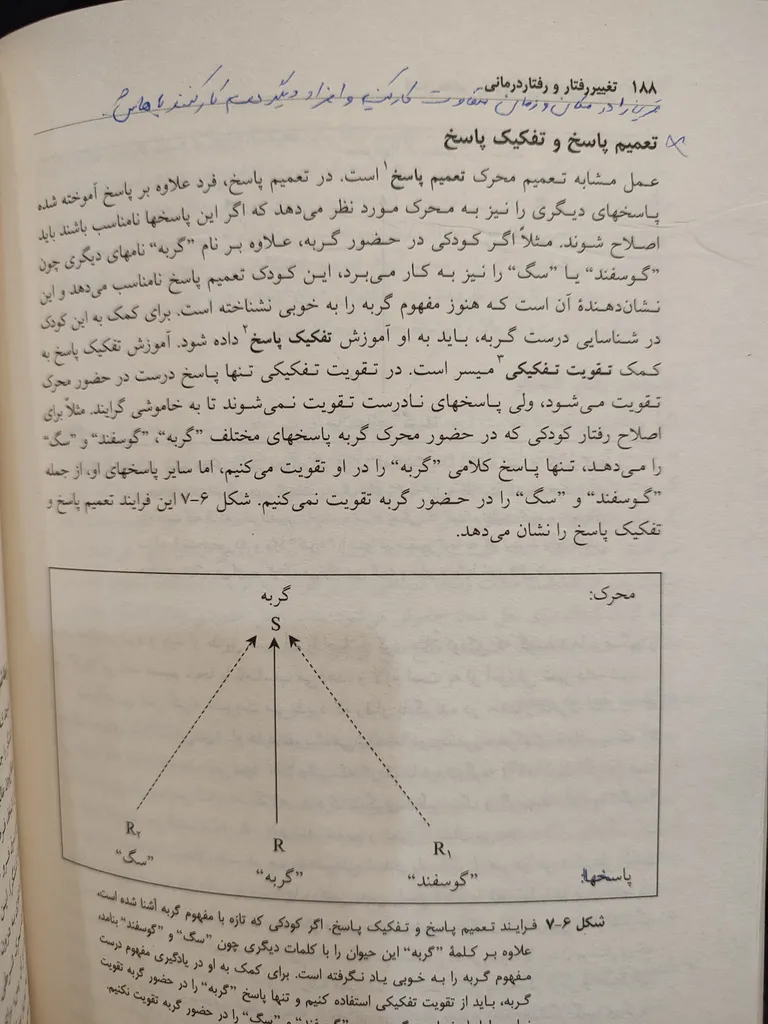 ۱۸۸ تغییررفتار و رفتاردرمانی
در مکان و زمان متفاوت کار کنیم و افراد دیگر هم کار کنند باهاش
تعمیم پاسخ و تفکیک پاسخ
عمل مشابه تعمیم محرک تعمیم پاسخ۱ است. در تعمیم پاسخ، فرد علاوه بر پاسخ آموخته شده
پاسخهای دیگری را نیز به محرک مورد نظر می‌دهد که اگر این پاسخها نامناسب باشند باید
اصلاح شوند. مثلاً اگر کودکی در حضور گربه، علاوه بر نام "گربه" نامهای دیگری چون
"گوسفند" یا "سگ" را نیز به کار می‌برد، این کودک تعمیم پاسخ نامناسب می‌دهد و این
نشان‌دهندهٔ آن است که هنوز مفهوم گربه را به خوبی نشناخته است. برای کمک به این کودک
در شناسایی درست گربه، باید به او آموزش تفکیک پاسخ۲ داده شود. آموزش تفکیک پاسخ به
کمک تقویت تفکیکی۳ میسر است. در تقویت تفکیکی تنها پاسخ درست در حضور محرک
تقویت می‌شود، ولی پاسخهای نادرست تقویت نمی‌شوند تا به خاموشی گرایند. مثلاً برای
اصلاح رفتار کودکی که در حضور محرک گربه پاسخهای مختلف "گربه"، "گوسفند" و "سگ"
را می‌دهد، تنها پاسخ کلامی "گربه" را در او تقویت می‌کنیم، اما سایر پاسخهای او، از جمله
"گوسفند" و "سگ" را در حضور گربه تقویت نمی‌کنیم. شکل ۶-۷ این فرایند تعمیم پاسخ و
تفکیک پاسخ را نشان می‌دهد.
محرک:
گربه
S
R₁
R
R₂
پاسخها:
"گوسفند"
"گربه"
"سگ"
شکل ۶-۷ فرایند تعمیم پاسخ و تفکیک پاسخ. اگر کودکی که تازه با مفهوم گربه آشنا شده است،
علاوه بر کلمهٔ "گربه" این حیوان را با کلمات دیگری چون "سگ" و "گوسفند" بنامد،
مفهوم گربه را به خوبی یاد نگرفته است. برای کمک به او در یادگیری مفهوم درست
گربه، باید از تقویت تفکیکی استفاده کنیم و تنها پاسخ "گربه" را در حضور گربه تقویت
و "سگ" را در حضور گربه تقویت نکنیم.